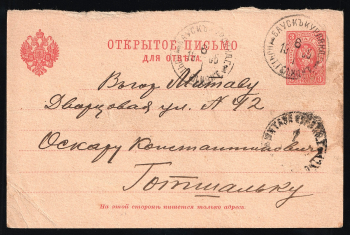 ОТКРЫТОЕ ПИСЬМО
ДЛЯ ОТВѢТА.
Въ гор. Митаву
Дворцовая ул. N
Оскару Константиновичу
Готшальку
На этой сторонѣ пишется только адресъ.